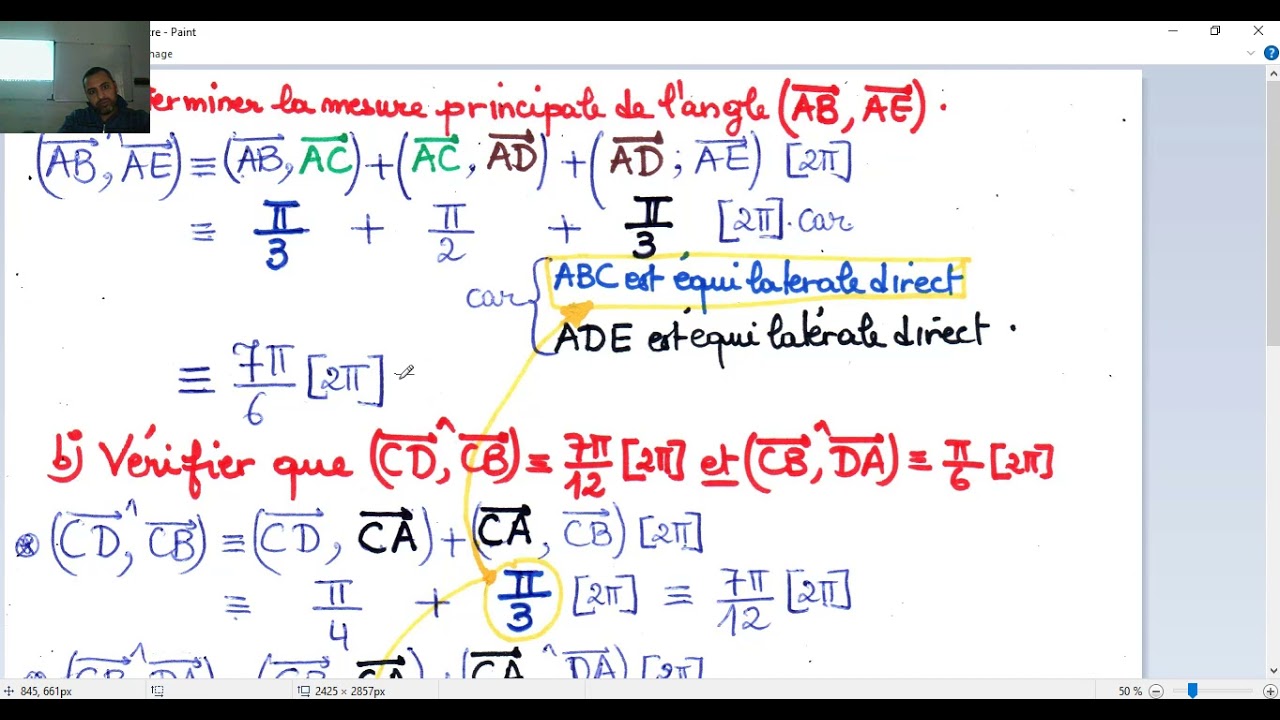 tre - Paint
hage
terminer la mesure principale de l'angle (AB, AE).
(AB, AE) ≡ (AB, AC) + (AC, AD) + (AD ; AE) [2π]
≡ π/3 + π/2 + π/3 [2π]. car
car { ABC est équilatérale direct
ADE est équilatérale direct.
≡ 7π/6 [2π]
b) Vérifier que (CD, CB) ≡ 7π/12 [2π] et (CB, DA) ≡ π/6 [2π]
⊛ (CD, CB) ≡ (CD, CA) + (CA, CB) [2π]
≡ π/4 + π/3 [2π] ≡ 7π/12 [2π]
845, 661px 2425 × 2857px 50 %